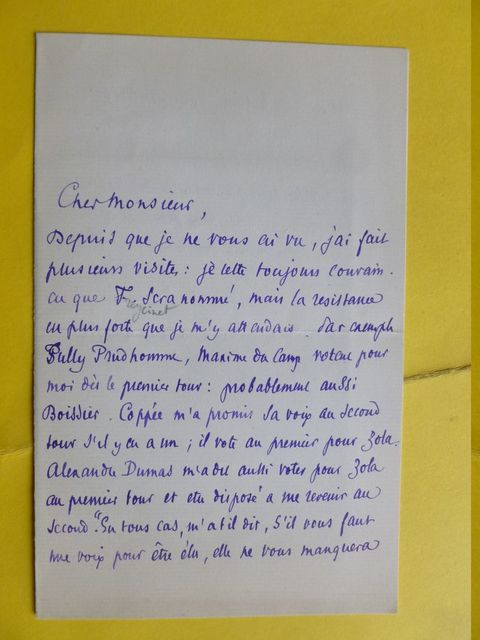 Cher Monsieur,
Depuis que je ne vous ai vu, j'ai fait
plusieurs visites: je suis toujours convain-
cu que F. sera nommé, mais la resistance
Freycinet
est plus forte que je m'y attendais. Par exemple
Sully Prudhomme, Maxime du Camp votent pour
moi dès le premier tour: probablement aussi
Boissier. Coppée m'a promis sa voix au second
tour s'il y en a un; il vote au premier pour Zola.
Alexandre Dumas m'a dit aussi voter pour Zola
au premier tour et etre disposé a me revenir au
second. "En tous cas, m'a t'il dit, s'il vous faut
une voix pour être élu, elle ne vous manquera